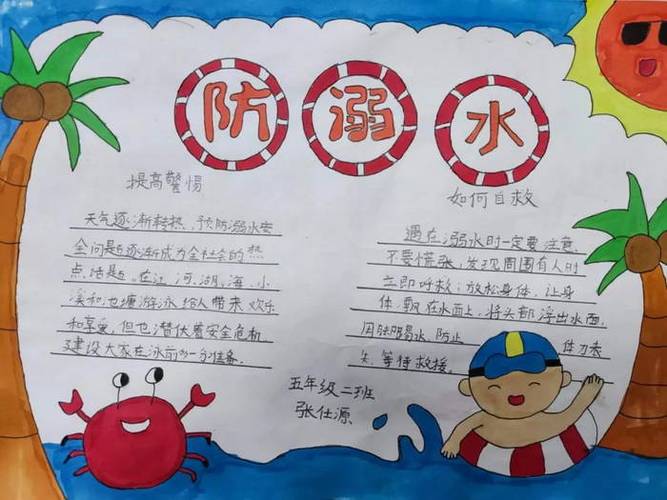 防溺水
提高警惕
天气逐渐转热,预防溺水安
全问题逐渐成为全社会的热
点话题。在江、河、湖、海、小
溪和池塘游泳给人带来欢乐
和享受,但也潜伏着安全危机
建设大家在泳前多一分准备.
如何自救
遇在溺水时一定要注意,
不要慌张,发现周围有人时
立即呼救;放松身体,让身
体飘在水面上,将头部浮出水面,
用脚踢水、防止 体力丧
失,等待救援。
五年级二班
张仕源